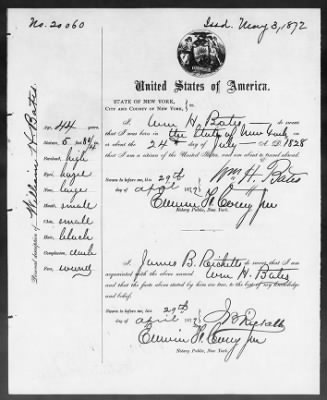 No. 20060
Issd. May 3, 1872
United States of America.
STATE OF NEW YORK,
CITY AND COUNTY OF NEW YORK, } ss.
I, Wm H. Bates do swear
that I was born in the State of New York on
or about the 24th day of July A. D. 1828
that I am a citizen of the United States, and am about to travel abroad.
Sworn to before me, this 29th
day of april 187
Wm H. Bates
Edwin F. Corey Jr
Notary Public, New York.
I, James B. Ricketts do swear that I am
acquainted with the above named Wm H. Bates
and that the facts above stated by him are true, to the best of my knowledge
and belief.
Sworn to before me, this 29th
day of april 187
Edwin F. Corey Jr
Notary Public, New York.
Personal description of William H. Bates
Age, 44 years.
Stature, 5
Forehead, high
Eyes, hazel
Nose, large
Mouth, small
Chin, small
Hair, black
Complexion, dark
Face, round